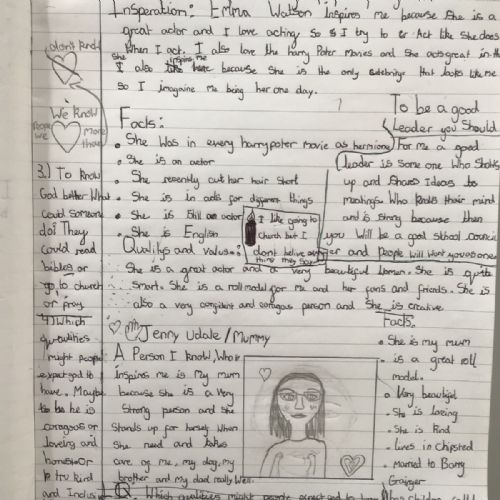 Insperation: Emma Watson Inspires me because She is a
great actor and I love acting so I try to Act like She does
When I act. I also love the Harry Poter Movies and She acts great in th
I also like her because She is the only Celebrity that looks like me
inspires me
She
So I imagaine me being her one day.
I don't kn
We know
People we
More
than
Facts:
. She was in every harry poter movie as hermione
. She is an actor
. She recently cut her hair Short
. She is in ads for different things
. She is Still an actor
. She is English
I like going to
church but I
dont belive
thing may say
To be a good
Leader you Should
For me a good
leader is Some one Who Shows
up and Shares Ideas to
meatings. Who Knows their mind
and is strong because then
you Will be a good School council
and people will want you as one
3.) To Know
God better What
could Someone
do? They
could read
bibles or
go to church
or pray
Qualitys and values:
She is a great actor and a very beautiful Woman. She is quite
Smart. She is a roll modal for me and her fans and friends. She is
also a very confident and coragous person and She is creative
4) Which
qualities
might people
expect god to
have. Maybe
to be he is
coragous or
loveing and
honest or
kind
and
Jenny Udale/Mummy
A Person I know, Who
Inspires me is My mum
because She is a very
Strong person and She
Stands up for herself When
She need and takes
care of me, my dog, my
brother and my dad really Well.
Facts:
. She is my mum
. is a great roll
model.
. Very beautiful
. She is loving
. She is Kind
. Lives in Chipsted
. Married to Barry
Grainger
Q. Which qualities might people expect god to